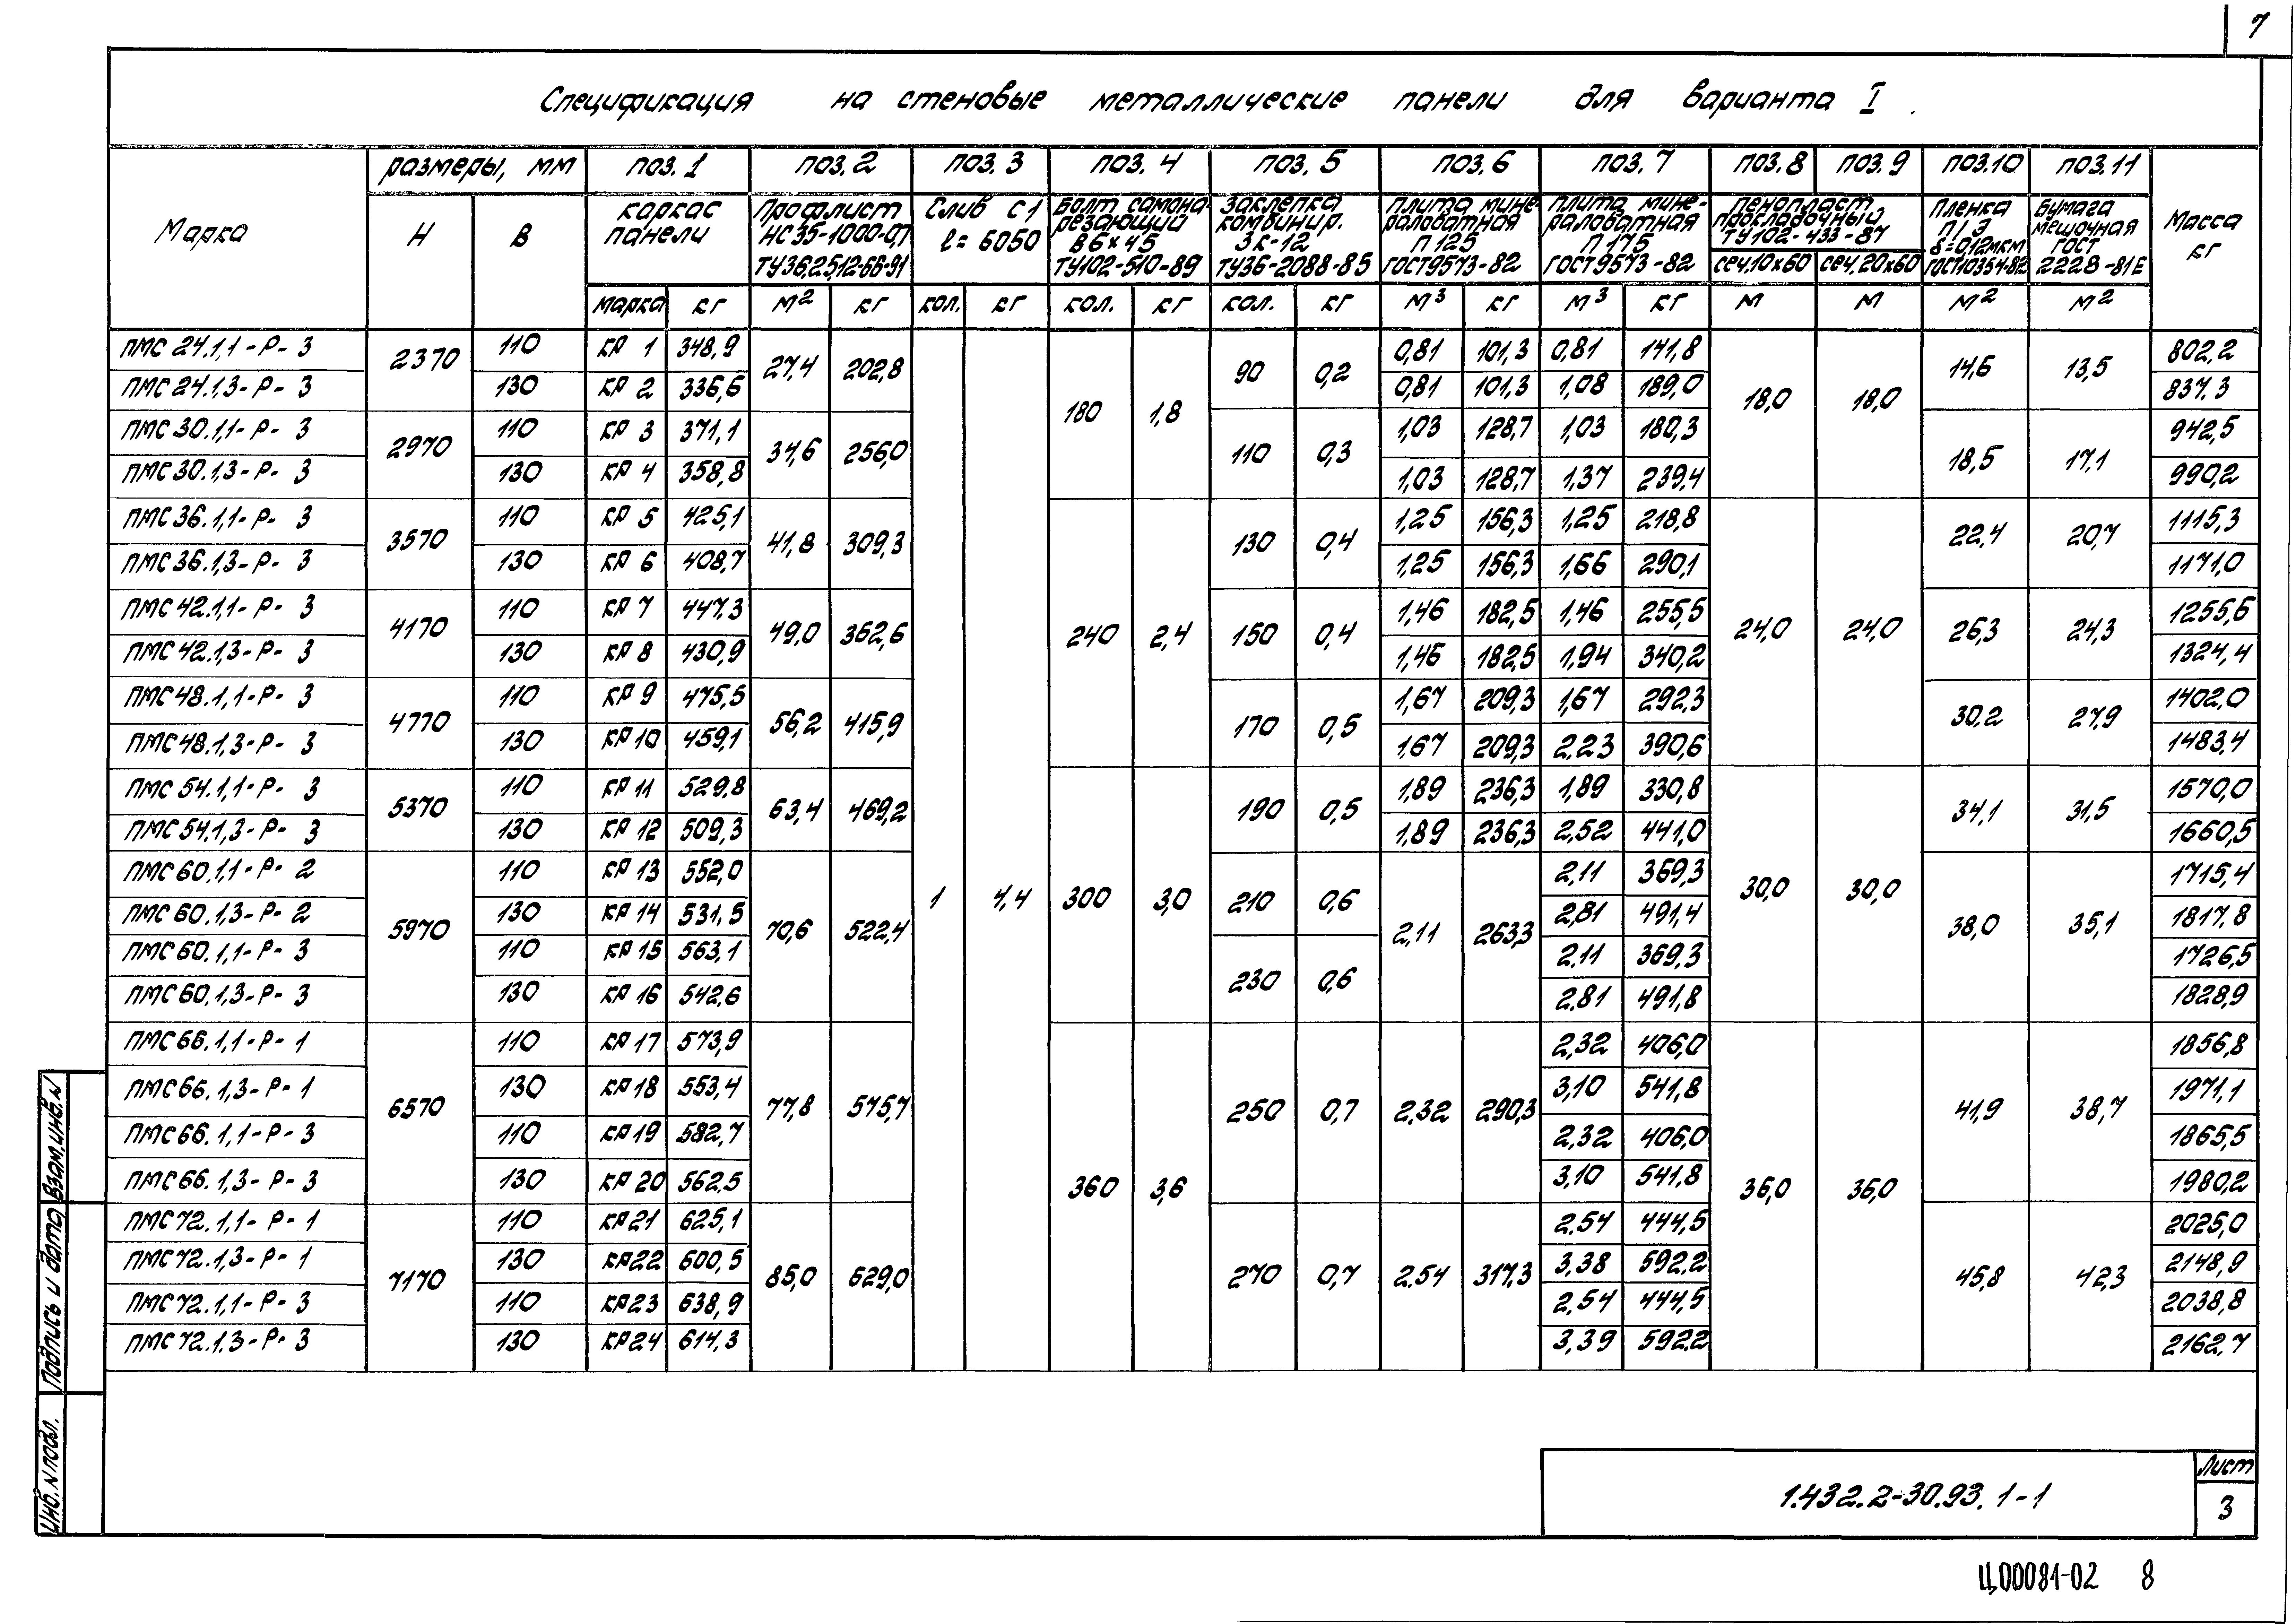 7
Спецификация на стеновые металлические панели для варианта I.
Марка | размеры, мм | поз. 1 | поз. 2 | поз. 3 | поз. 4 | поз. 5 | поз. 6 | поз. 7 | поз. 8 | поз. 9 | поз. 10 | поз. 11 | Масса кг
Н | В | каркас панели | Профлист НС 35-1000-0,7 ТУ36.25.12-66-91 | Слив С1 l= 6050 | Болт самонарезающий В6×45 ТУ102-510-89 | Заклепка комбинир. ЗК-12 ТУ36-2088-85 | Плита минераловатная П 125 ГОСТ9573-82 | Плита минераловатная П 175 ГОСТ9573-82 | Пенопласт прокладочный ТУ102-433-87 | Пленка П/Э δ=0,12мкм ГОСТ10354-82 | Бумага мешочная ГОСТ 2228-81Е
сеч. 10×60 | сеч. 20×60
марка | кг | м² | кг | кол. | кг | кол. | кг | кол. | кг | м³ | кг | м³ | кг | м | м | м² | м²
ПМС 24.1,1-Р-3 | 2370 | 110 | КР 1 | 348,9 | 27,4 | 202,8 | 1 | 4,4 | 180 | 1,8 | 90 | 0,2 | 0,81 | 101,3 | 0,81 | 141,8 | 18,0 | 18,0 | 14,6 | 13,5 | 802,2
ПМС 24.1,3-Р-3 | 130 | КР 2 | 336,6 | 0,81 | 101,3 | 1,08 | 189,0 | 837,3
ПМС 30.1,1-Р-3 | 2970 | 110 | КР 3 | 371,1 | 34,6 | 256,0 | 110 | 0,3 | 1,03 | 128,7 | 1,03 | 180,3 | 18,5 | 17,1 | 942,5
ПМС 30.1,3-Р-3 | 130 | КР 4 | 358,8 | 1,03 | 128,7 | 1,37 | 239,4 | 990,2
ПМС 36.1,1-Р-3 | 3570 | 110 | КР 5 | 425,1 | 41,8 | 309,3 | 240 | 2,4 | 130 | 0,4 | 1,25 | 156,3 | 1,25 | 218,8 | 24,0 | 24,0 | 22,4 | 20,7 | 1115,3
ПМС 36.1,3-Р-3 | 130 | КР 6 | 408,7 | 1,25 | 156,3 | 1,66 | 290,1 | 1171,0
ПМС 42.1,1-Р-3 | 4170 | 110 | КР 7 | 447,3 | 49,0 | 362,6 | 150 | 0,4 | 1,46 | 182,5 | 1,46 | 255,5 | 26,3 | 24,3 | 1255,6
ПМС 42.1,3-Р-3 | 130 | КР 8 | 430,9 | 1,46 | 182,5 | 1,94 | 340,2 | 1324,4
ПМС 48.1,1-Р-3 | 4770 | 110 | КР 9 | 475,5 | 56,2 | 415,9 | 170 | 0,5 | 1,67 | 209,3 | 1,67 | 292,3 | 30,2 | 27,9 | 1402,0
ПМС 48.1,3-Р-3 | 130 | КР 10 | 459,1 | 1,67 | 209,3 | 2,23 | 390,6 | 1483,4
ПМС 54.1,1-Р-3 | 5370 | 110 | КР 11 | 529,8 | 63,4 | 469,2 | 300 | 3,0 | 190 | 0,5 | 1,89 | 236,3 | 1,89 | 330,8 | 30,0 | 30,0 | 34,1 | 31,5 | 1570,0
ПМС 54.1,3-Р-3 | 130 | КР 12 | 509,3 | 1,89 | 236,3 | 2,52 | 441,0 | 1660,5
ПМС 60.1,1-Р-2 | 5970 | 110 | КР 13 | 552,0 | 70,6 | 522,4 | 210 | 0,6 | 2,11 | 263,3 | 2,11 | 369,3 | 38,0 | 35,1 | 1715,4
ПМС 60.1,3-Р-2 | 130 | КР 14 | 531,5 | 2,81 | 491,4 | 1817,8
ПМС 60.1,1-Р-3 | 110 | КР 15 | 563,1 | 230 | 0,6 | 2,11 | 369,3 | 1726,5
ПМС 60.1,3-Р-3 | 130 | КР 16 | 542,6 | 2,81 | 491,8 | 1828,9
ПМС 66.1,1-Р-1 | 6570 | 110 | КР 17 | 573,9 | 77,8 | 575,7 | 360 | 3,6 | 250 | 0,7 | 2,32 | 290,3 | 2,32 | 406,0 | 36,0 | 36,0 | 41,9 | 38,7 | 1856,8
ПМС 66.1,3-Р-1 | 130 | КР 18 | 553,4 | 3,10 | 541,8 | 1971,1
ПМС 66.1,1-Р-3 | 110 | КР 19 | 582,7 | 2,32 | 406,0 | 1865,5
ПМС 66.1,3-Р-3 | 130 | КР 20 | 562,5 | 3,10 | 541,8 | 1980,2
ПМС 72.1,1-Р-1 | 7170 | 110 | КР 21 | 625,1 | 85,0 | 629,0 | 270 | 0,7 | 2,54 | 317,3 | 2,54 | 444,5 | 45,8 | 42,3 | 2025,0
ПМС 72.1,3-Р-1 | 130 | КР 22 | 600,5 | 3,38 | 592,2 | 2148,9
ПМС 72.1,1-Р-3 | 110 | КР 23 | 638,9 | 2,54 | 444,5 | 2038,8
ПМС 72.1,3-Р-3 | 130 | КР 24 | 614,3 | 3,39 | 592,2 | 2162,7
Взам. инв. N
Подпись и дата
Инв. N подл.
1.432.2-30.93.1-1
Лист
3
Ц00081-02 8